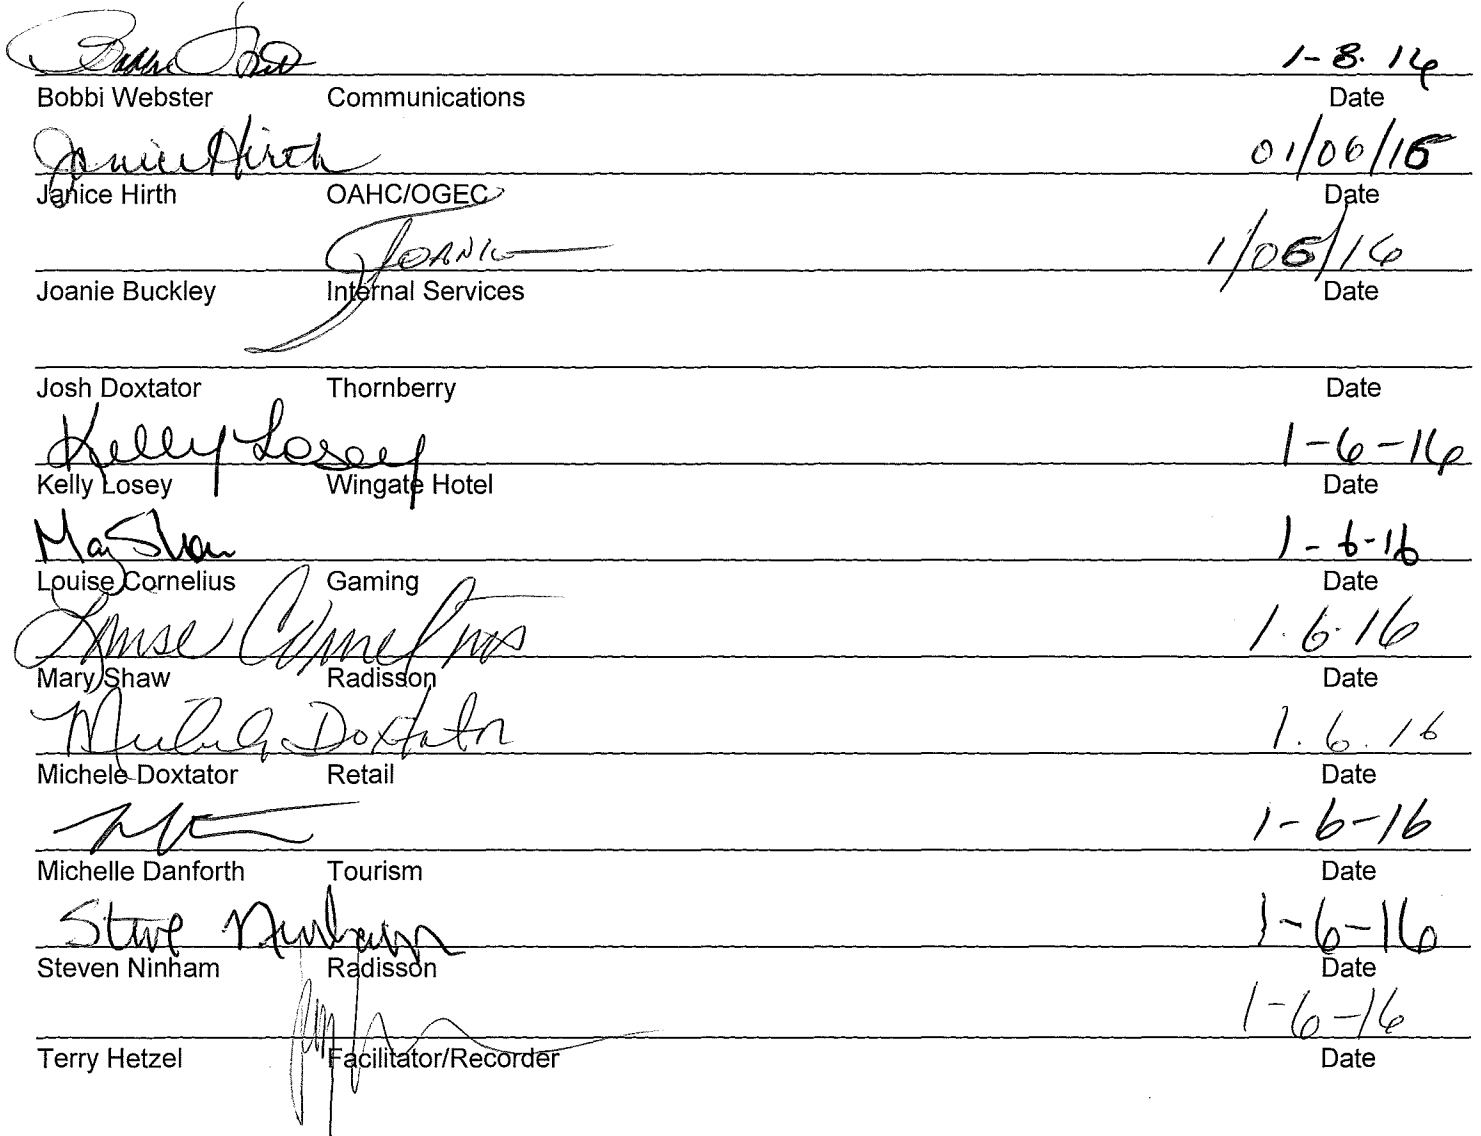 1-8.16
Bobbi Webster Communications Date
Janice Hirth 01/06/16
Janice Hirth OAHC/OGEC Date
Joanie 1/06/16
Joanie Buckley Internal Services Date
Josh Doxtator Thornberry Date
Kelly Losey 1-6-16
Kelly Losey Wingate Hotel Date
Mary Shaw 1-6-16
Louise Cornelius Gaming Date
Louise Cornelius 1.6.16
Mary Shaw Radisson Date
Michele Doxtator 1.6.16
Michele Doxtator Retail Date
1-6-16
Michelle Danforth Tourism Date
Steve Ninham 1-6-16
Steven Ninham Radisson Date
1-6-16
Terry Hetzel Facilitator/Recorder Date